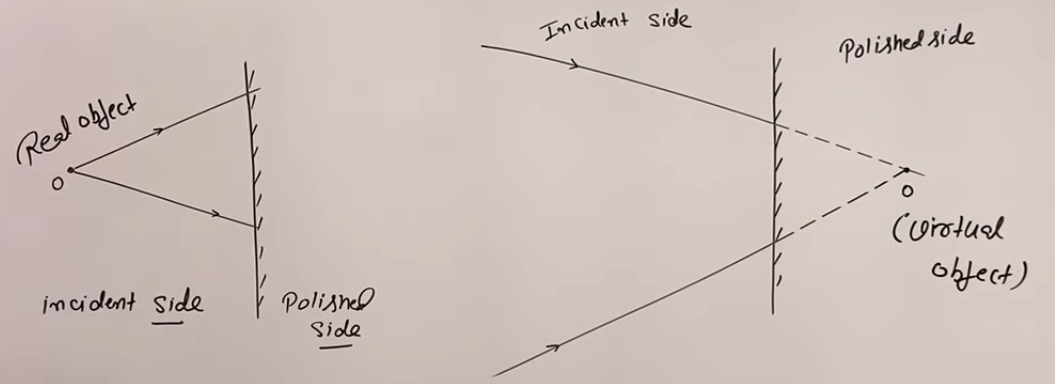 Real object
O
incident side
Polished
side
Incident side
Polished side
O
(virtual
object)